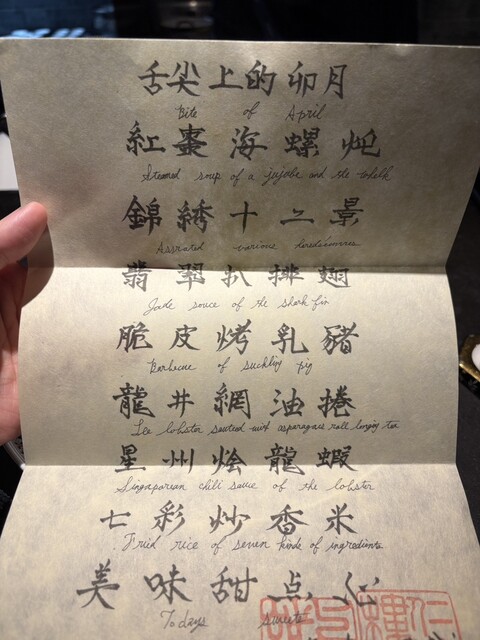 舌尖上的卯月
Bite of April
紅棗海螺炖
Steamed soup of a jujube and the whelk
錦綉十二景
Assorted various
翡翠扒排翅
Jade souce of the shark fin
脆皮烤乳豬
Barbecue of suckling pig
龍井網油捲
lobster asparagus roll longing tea
星州烩龍蝦
Singaporean chili sauce of the lobster
七彩炒香米
Fried rice of seven kinds of ingredients
美味甜点
Todays sweets